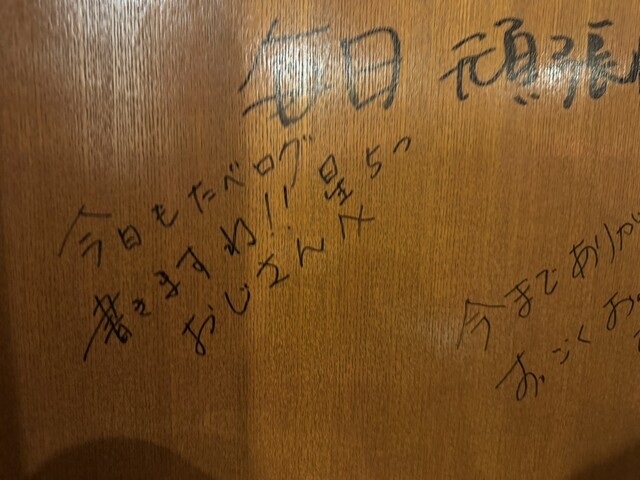 毎日 頑張
今日もたべログ
書きますね!! 星5つ
おじさんへ
今までありが
すっごくお